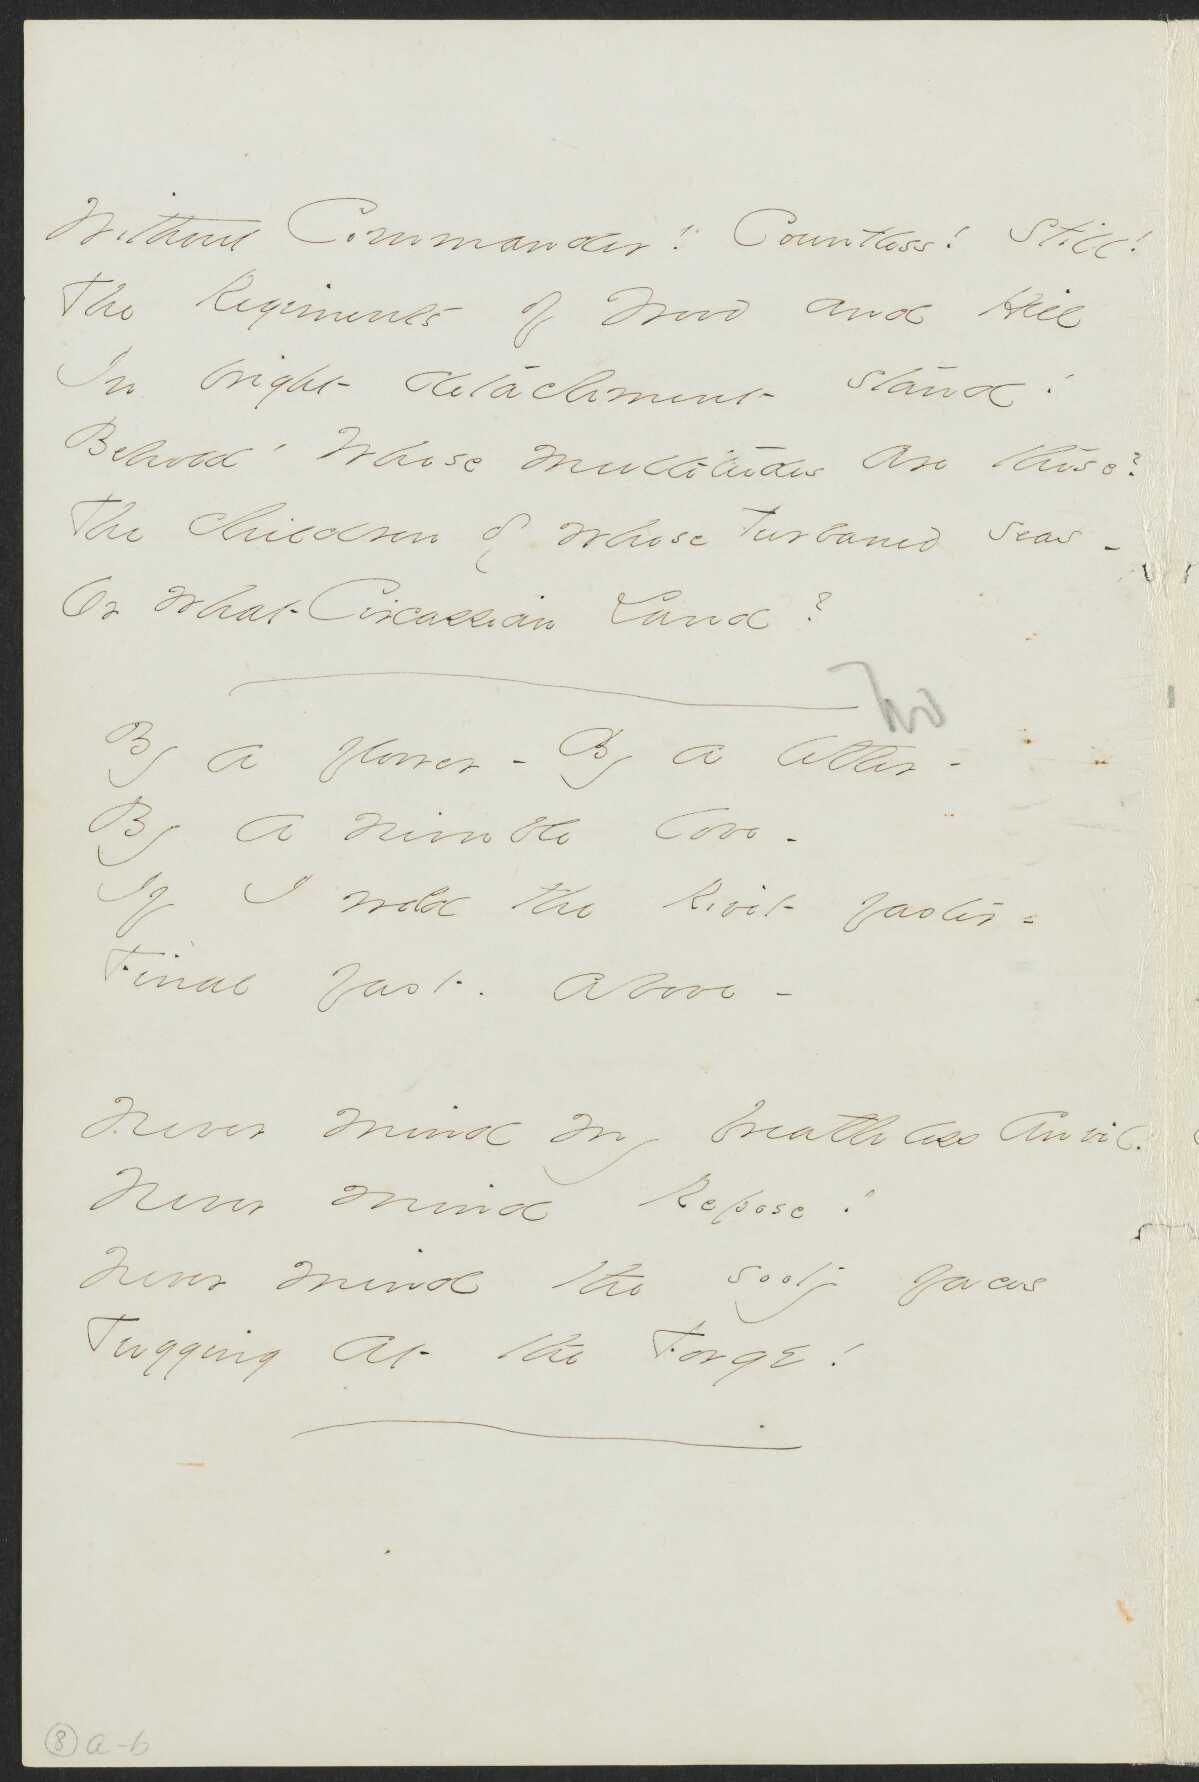 Without Commander! Countless! Still!
The Regiments of Wood and Hill
In bright detachment stand!
Behold! Whose multitudes are these?
The children of whose turbaned seas -
Or what Circassian Land?
By a flower - By a letter -
By a nimble love -
If I weld the Rivet faster -
Final fast - above -
Never mind my breathless Anvil!
Never mind Repose!
Never mind the sooty faces
Tugging at the Forge!
8 a-b